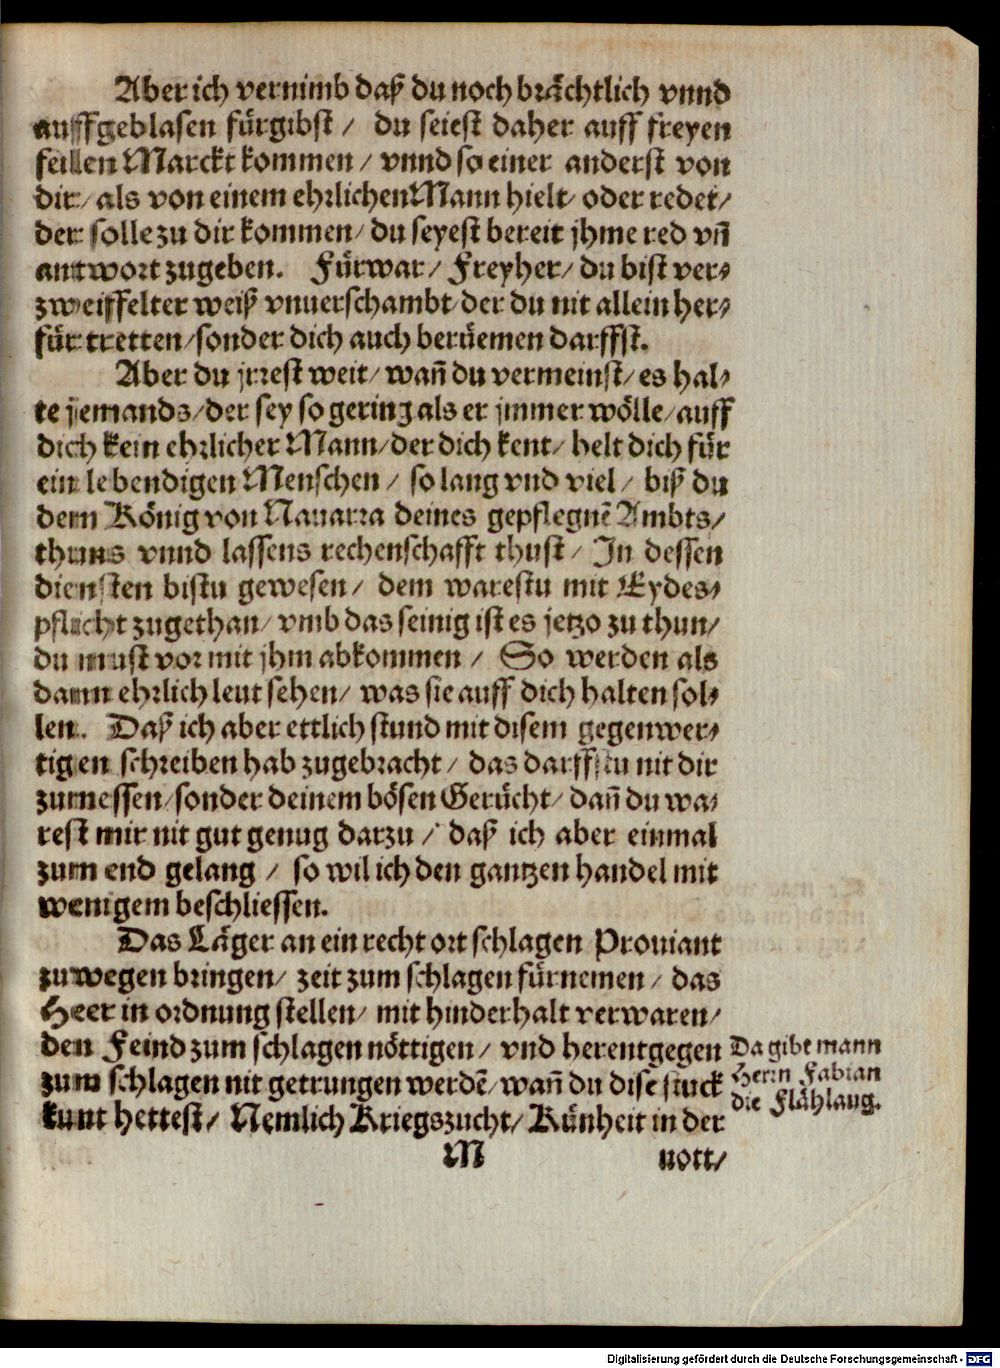 Aber ich vernimb daß du noch brächtlich vnnd
auffgeblasen fürgibst / du seiest daher auff freyen
feillen Marckt kommen / vnnd so einer anderst von
dir / als von einem ehrlichen Mann hielt / oder redet /
der solle zu dir kommen / du seyest bereit jhme red vñ
antwort zugeben. Fürwar / Freyher / du bist ver⸗
zweiffelter weiß vnuerschambt / der du nit allein her⸗
für tretten / sonder dich auch berüemen darffst.
Aber du jrrest weit / wañ du vermeinst / es hal⸗
te jemands / der sey so gering als er jmmer wölle / auff
dich kein ehrlicher Mann / der dich kent / helt dich für
ein lebendigen Menschen / so lang vnd viel / biß du
dem König von Nauarra deines gepflegnẽ Ambts /
thuns vnnd lassens rechenschafft thust / In dessen
diensten bistu gewesen / dem warestu mit Eydes⸗
pflicht zugethan / vmb das seinig ist es jetzo zu thun /
du must vor mit jhm abkommen / So werden als
dann ehrlich leut sehen / was sie auff dich halten sol⸗
len. Daß ich aber ettlich stund mit disem gegenwer⸗
tigen schreiben hab zugebracht / das darffstu nit dir
zumessen / sonder deinem bösen Gerücht / dañ du wa⸗
rest mir nit gut genug darzu / daß ich aber einmal
zum end gelang / so wil ich den gantzen handel mit
wenigem beschliessen.
Das Läger an ein recht ort schlagen Prouiant
zuwegen bringen / zeit zum schlagen fürnemen / das
Heer in ordnung stellen / mit hinderhalt verwaren /
den Feind zum schlagen nöttigen / vnd herentgegen
zum schlagen nit getrungen werdẽ / wañ du dise stuck
kunt hettest / Nemlich Kriegszucht / Künheit in der
Da gibt mann
Herrn Fabian
die Flählaug.
M nott /
Digitalisierung gefördert durch die Deutsche Forschungsgemeinschaft - DFG